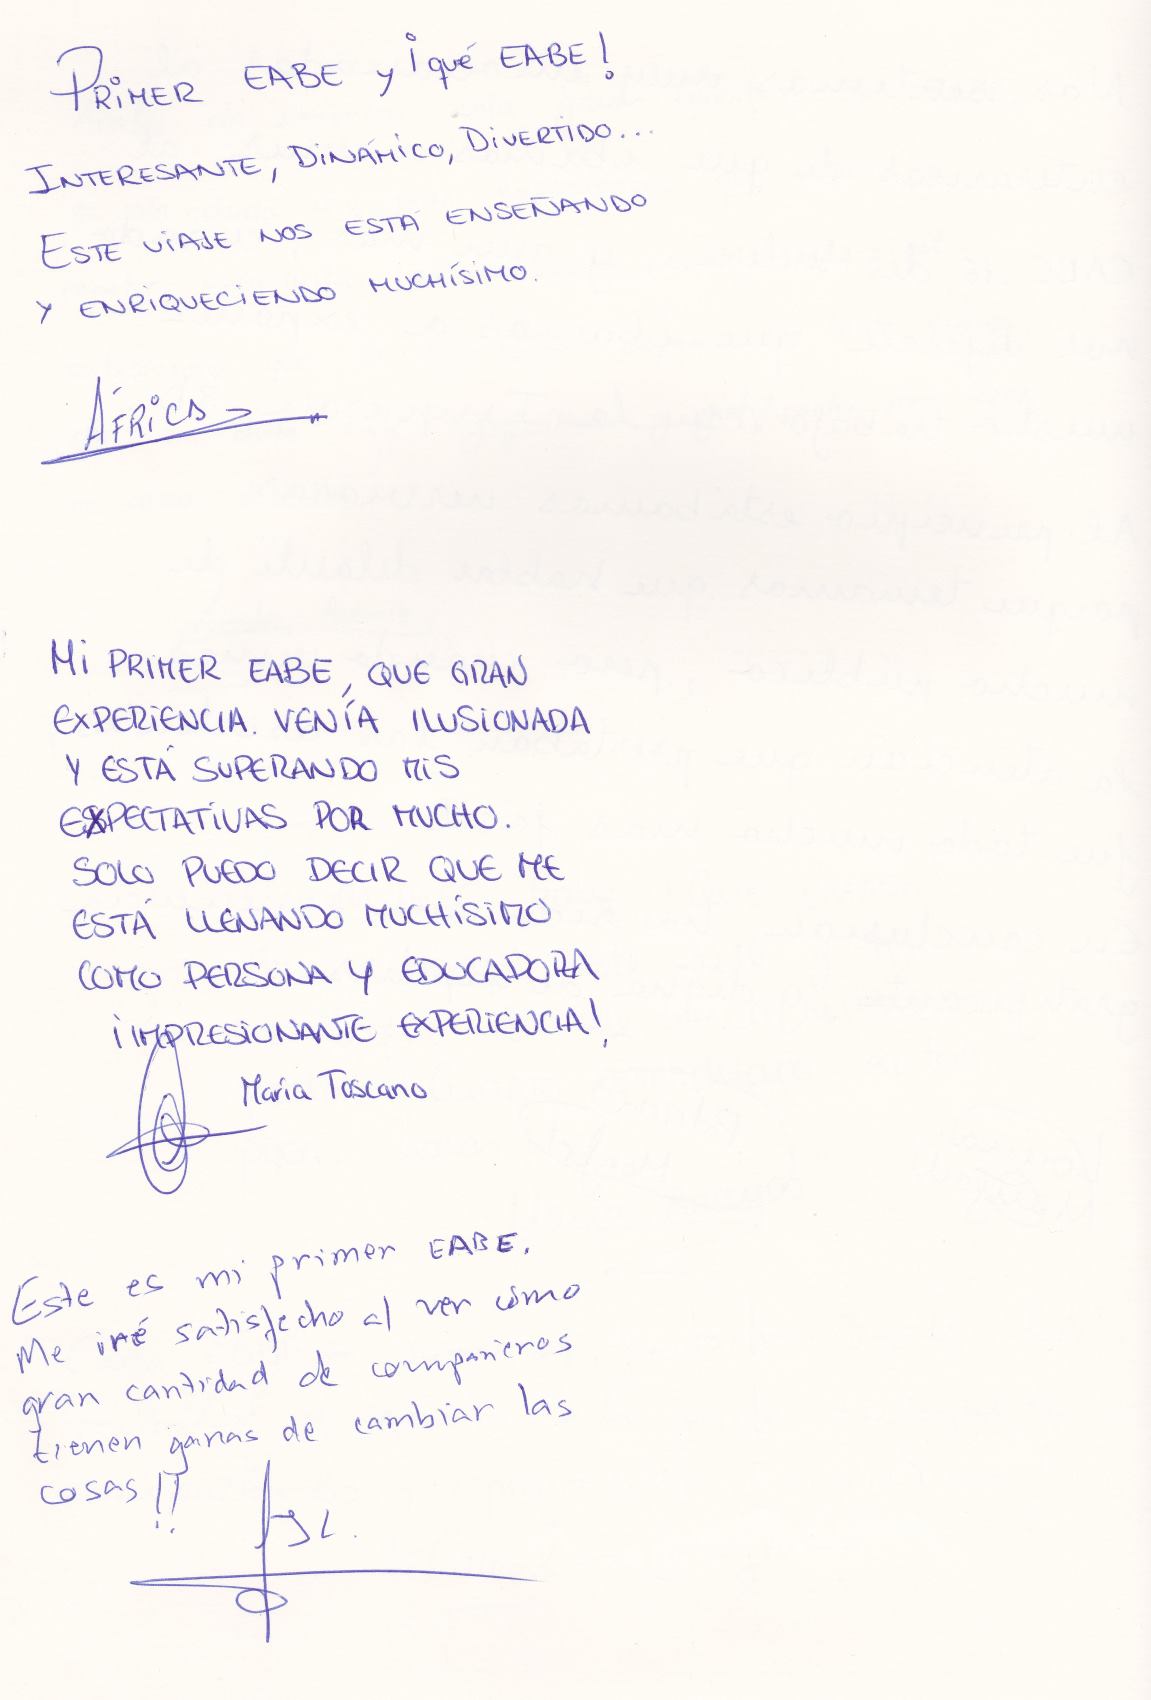 PRIMER EABE y ¡qué EABE!
INTERESANTE, DINÁMICO, DIVERTIDO...
ESTE VIAJE NOS ESTÁ ENSEÑANDO
Y ENRIQUECIENDO MUCHÍSIMO.
ÁFRICA
MI PRIMER EABE, QUE GRAN
EXPERIENCIA. VENÍA ILUSIONADA
Y ESTÁ SUPERANDO MIS
EXPECTATIVAS POR MUCHO.
SOLO PUEDO DECIR QUE ME
ESTÁ LLENANDO MUCHÍSIMO
COMO PERSONA Y EDUCADORA
¡IMPRESIONANTE EXPERIENCIA!
María Toscano
Este es mi primer EABE.
Me iré satisfecho al ver cómo
gran cantidad de compañeros
tienen ganas de cambiar las
cosas!!